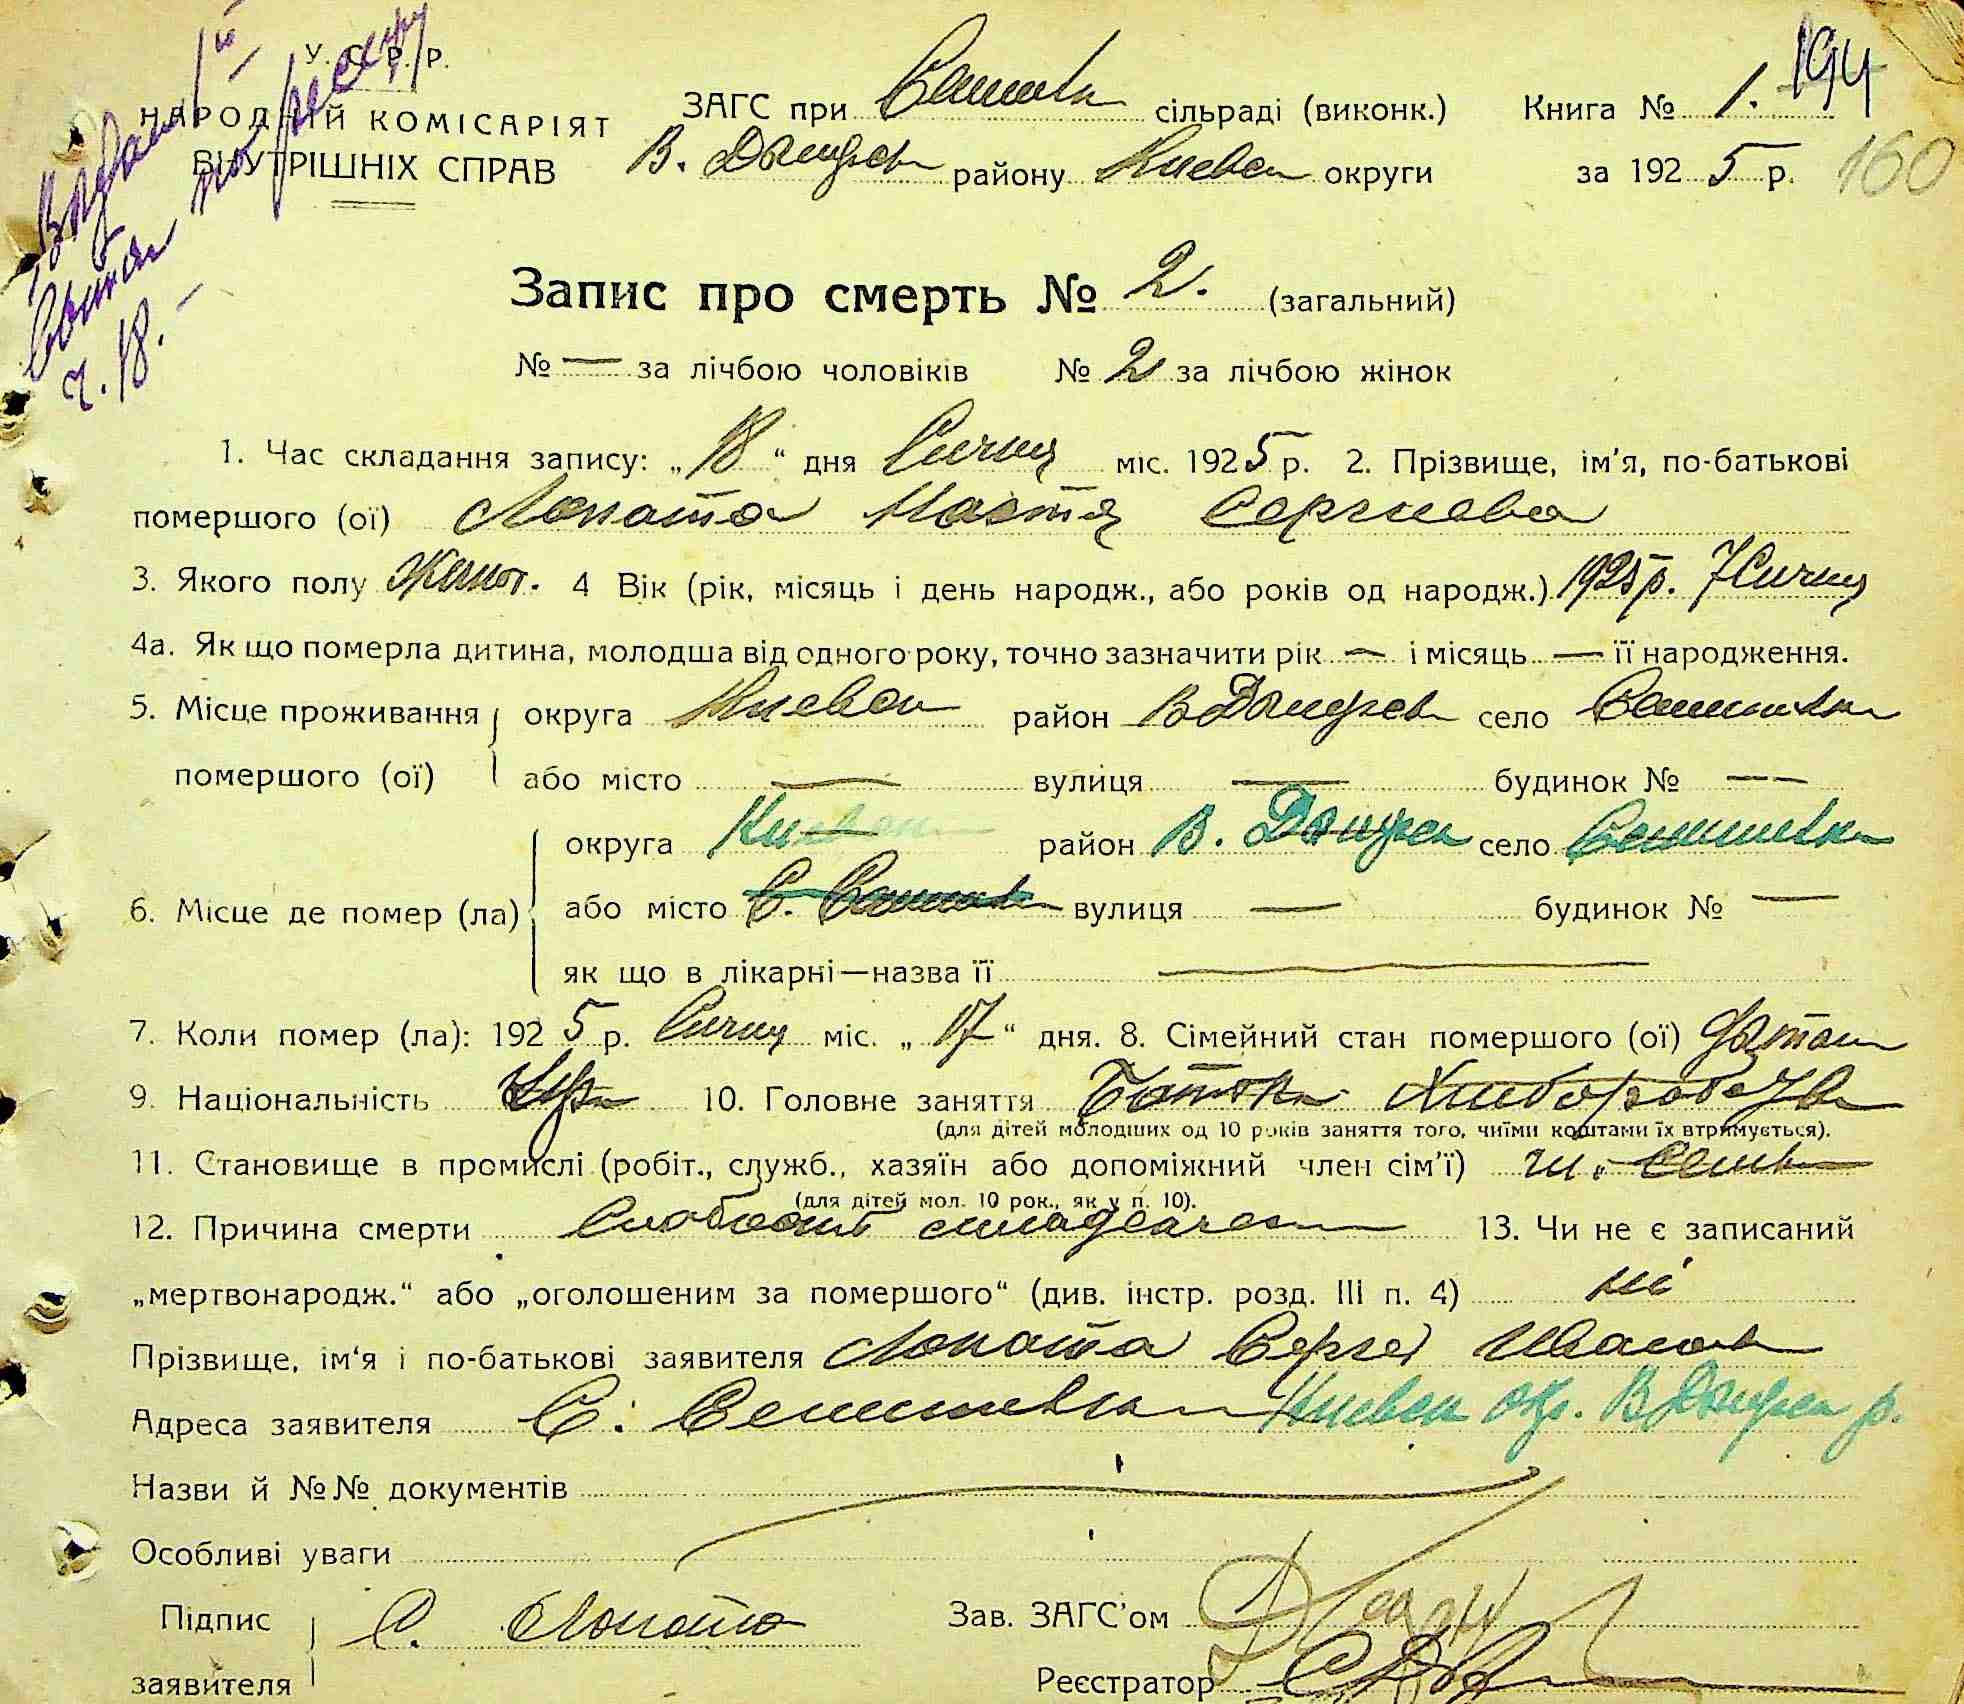 У. С. Р. Р.
НАРОДНІЙ КОМІСАРІЯТ
ВНУТРІШНІХ СПРАВ
ЗАГС при сільраді (виконк.) Книга № 1. 194
В. Димерск району Киевск округи за 1925 р. 160
ч. 18. –
Запис про смерть № 2. (загальний)
№ — за лічбою чоловіків № 2 за лічбою жінок
1. Час складання запису: „18“ дня Січня міс. 1925 р. 2. Прізвище, ім'я, по-батькові
помершого (ої) Лопата Настя Сергиева
3. Якого полу Жіноч. 4 Вік (рік, місяць і день народж., або років од народж.) 1925 р. 7 Січня
4а. Як що померла дитина, молодша від одного року, точно зазначити рік — і місяць — її народження.
5. Місце проживання округа Киевск район В Димерск село
помершого (ої) або місто — вулиця — будинок № —
округа район В. Димерск село
6. Місце де помер (ла) або місто С. вулиця — будинок № —
як що в лікарні—назва її —
7. Коли помер (ла): 1925 р. Січня міс. „17“ дня. 8. Сімейний стан помершого (ої)
9. Національність Укр 10. Головне заняття Батька
(для дітей молодших од 10 років заняття того, чиїми коштами їх втримується).
11. Становище в промислі (робіт., служб., хазяїн або допоміжний член сім'ї)
(для дітей мол. 10 рок., як у п. 10).
12. Причина смерти 13. Чи не є записаний
„мертвонародж.“ або „оголошеним за помершого“ (див. інстр. розд. III п. 4) ні
Прізвище, ім'я і по-батькові заявителя Лопата Сергей Иванов
Адреса заявителя С. Киевск окр. В Димерск р.
Назви й №№ документів
Особливі уваги
Підпис С. Лопата Зав. ЗАГС'ом
заявителя Реєстратор